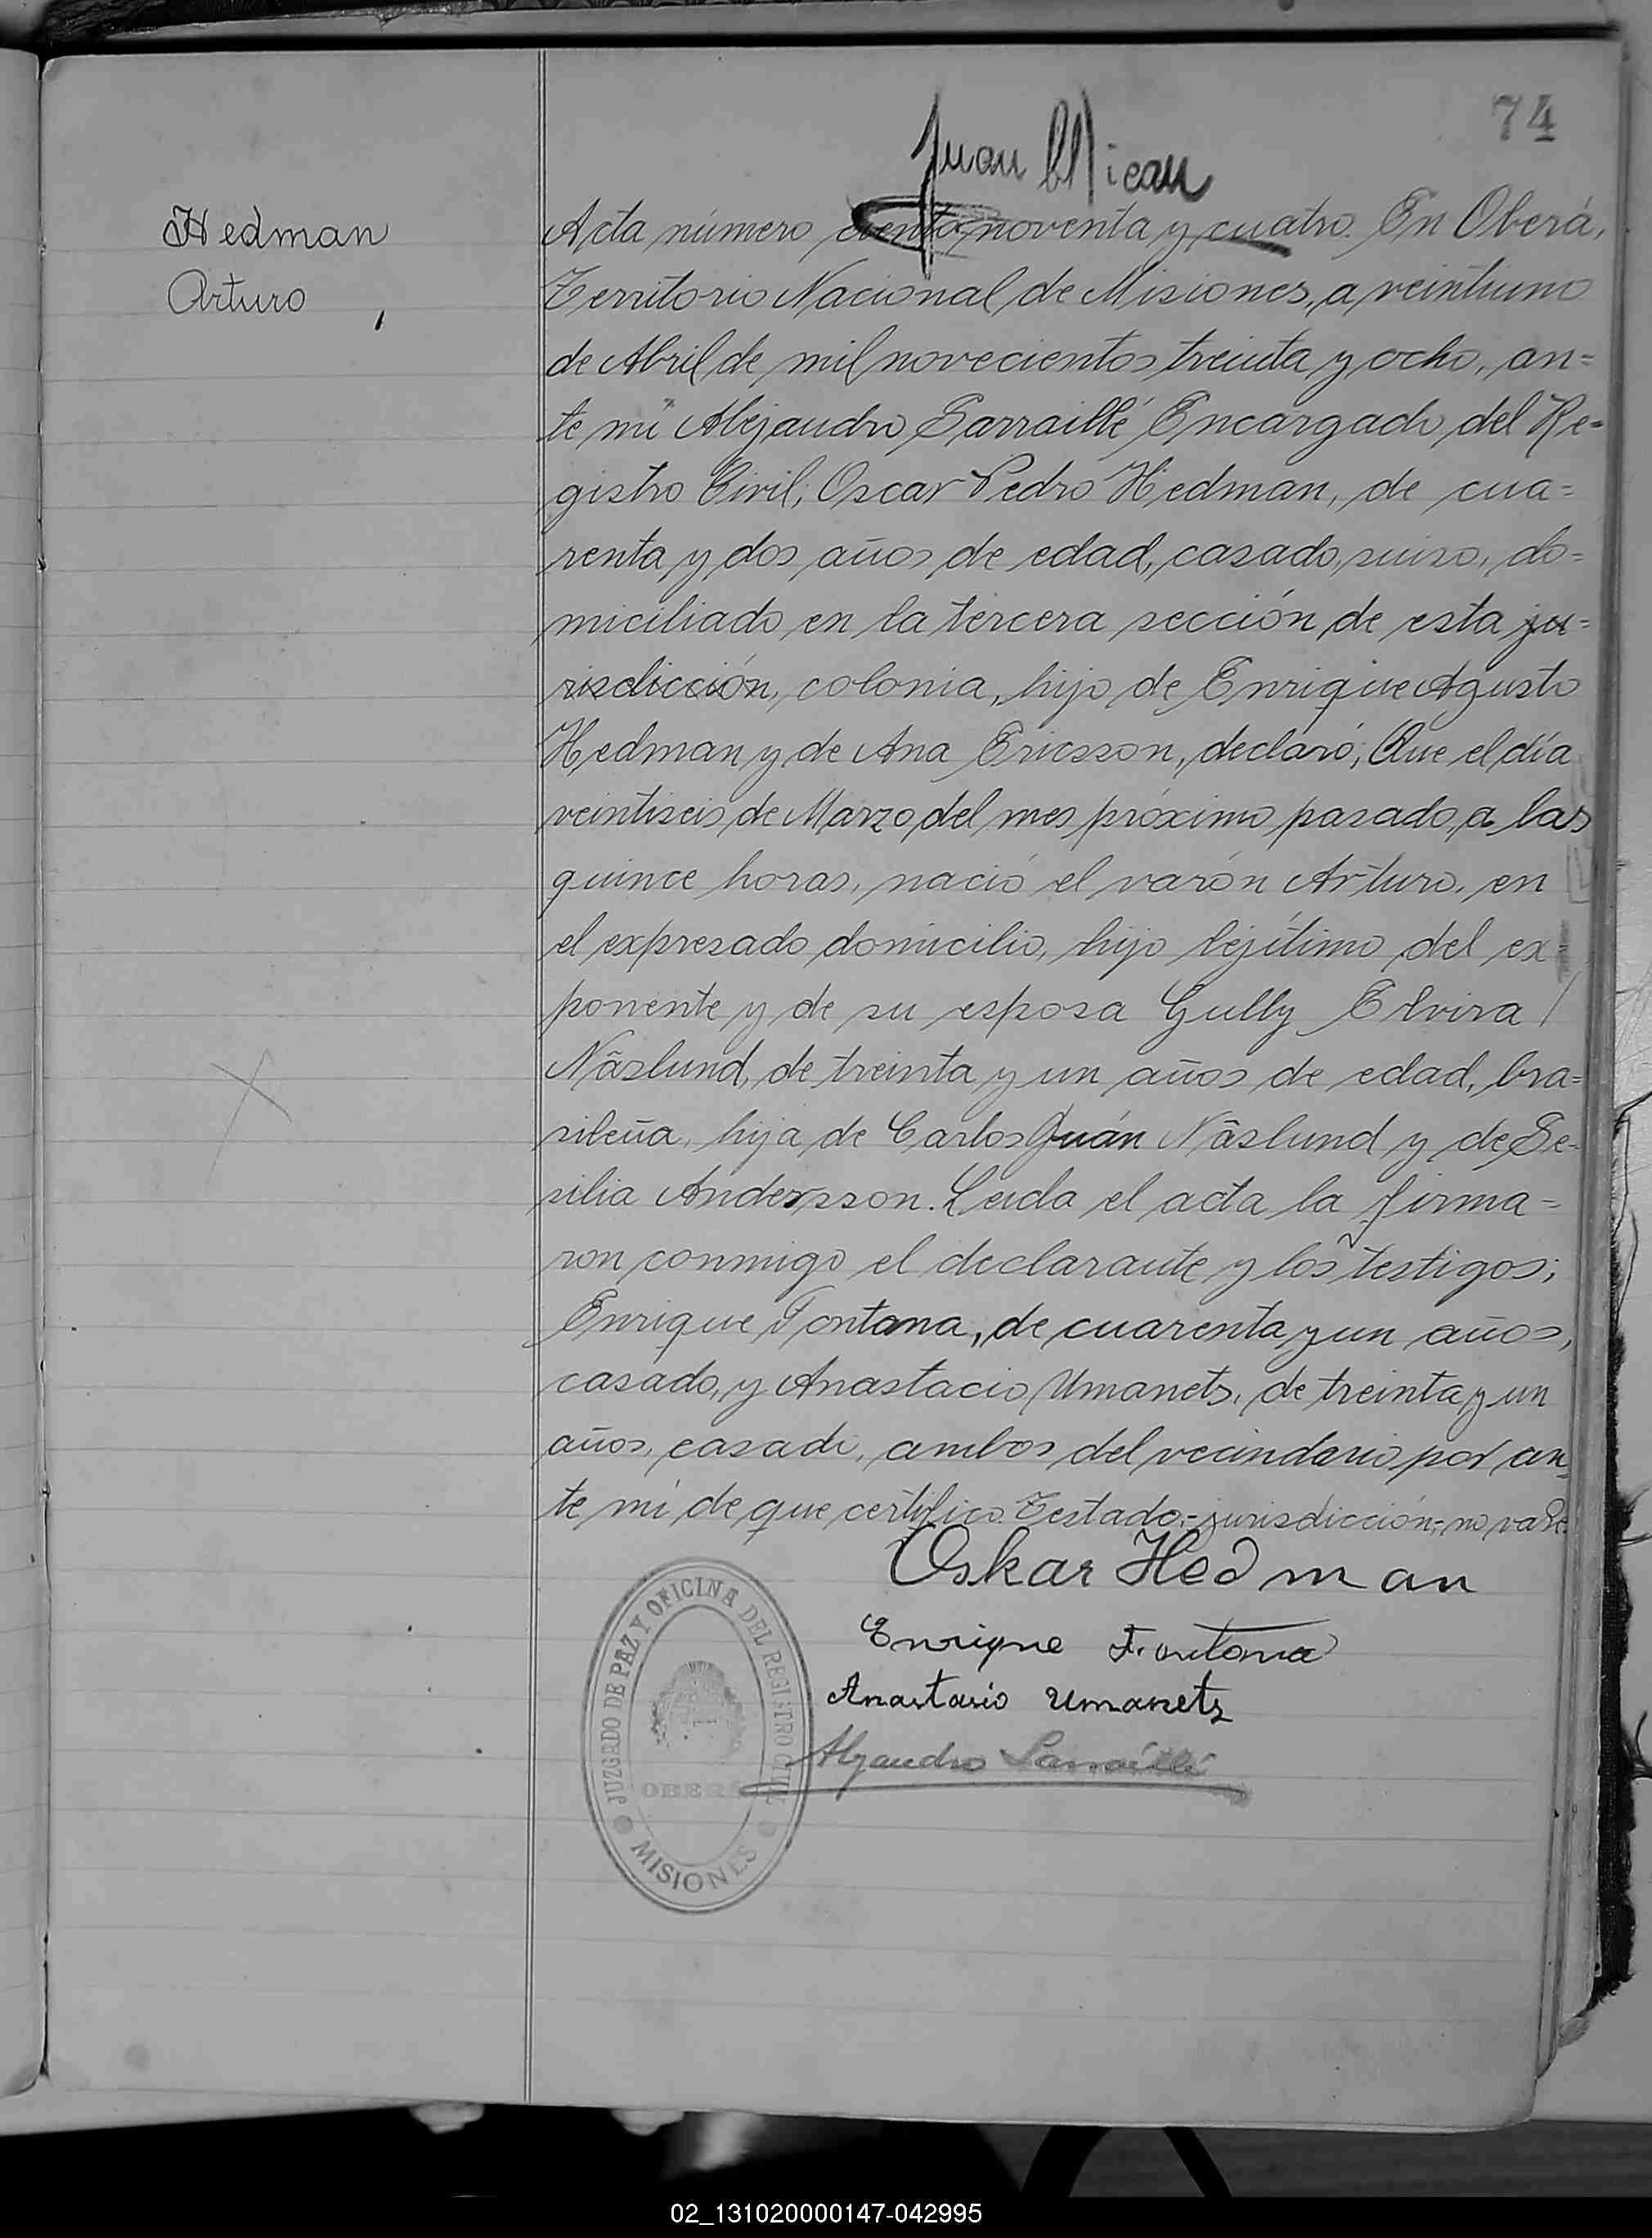 74
Juan
Hedman
Arturo
Acta número ciento noventa y cuatro. En Oberá,
Territorio Nacional de Misiones, a veintiuno
de Abril de mil novecientos treinta y ocho, an=
te mi Alejandro Sarraillé Encargado del Re=
gistro Civil; Oscar Pedro Hedman, de cua=
renta y dos años de edad, casado, suiso, do=
miciliado en la tercera sección de esta ju=
risdicción, colonia, hijo de Enrique Agusto
Hedman y de Ana Ericsson, declaró; Que el día
veintiseis de Marzo del mes próximo pasado, a las
quince horas, nació el varón Arturo, en
el expresado domicilio, hijo lejítimo del ex=
ponente y de su esposa Gully Elvira /
Nâslund, de treinta y un años de edad, bra=
sileña, hija de Carlos Juán Nâslund y de Se=
silia Andersson. Leida el acta la firma=
ron conmigo el declarante y los testigos;
Enrique Fontana, de cuarenta y un años,
casado, y Anastacio Umanets, de treinta y un
años, casado, ambos del vecindario por an=
te mí de que certifico. Testado:-jurisdicción;-no vale.
Oskar Hedman
Enrique Fontana
Anastasio Umanetz
Alejandro Sarraillé
JUZGADO DE PAZ Y OFICINA DEL REGISTRO CIVIL
OBERÁ
MISIONES
02_131020000147-042995